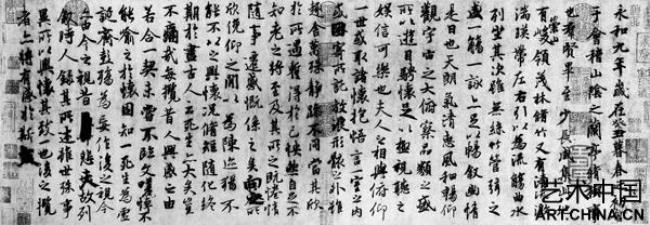 永和九年歲在癸丑暮春之初
于會稽山陰之蘭亭脩稧事
也羣賢畢至少長咸集此地
崇山
有峻領茂林脩竹又有清流激
湍暎帶左右引以為流觴曲水
列坐其次雖無絲竹管弦之
盛一觴一詠亦足以暢敘幽情
是日也天朗氣清惠風和暢仰
觀宇宙之大俯察品類之盛
所以遊目騁懷足以極視聽之
娛信可樂也夫人之相與俯仰
一世或取諸懷抱悟言一室之內
或因寄所託放浪形骸之外雖
趣舍萬殊靜躁不同當其欣
於所遇蹔得於己怏然自足不
知老之將至及其所之既惓情
隨事遷感慨係之矣向之所
欣俛仰之閒以為陳迹猶不
能不以之興懷況脩短隨化終
期於盡古人云死生亦大矣豈
不痛哉每攬昔人興感之由
若合一契未嘗不臨文嗟悼不
能喻之於懷固知一死生為虛
誕齊彭殤為妄作後之視今
亦由今之視昔悲夫故列
敘時人錄其所述雖世殊事
異所以興懷其致一也後之攬
者亦將有感於斯文
艺术中国
ART.CHINA.CN